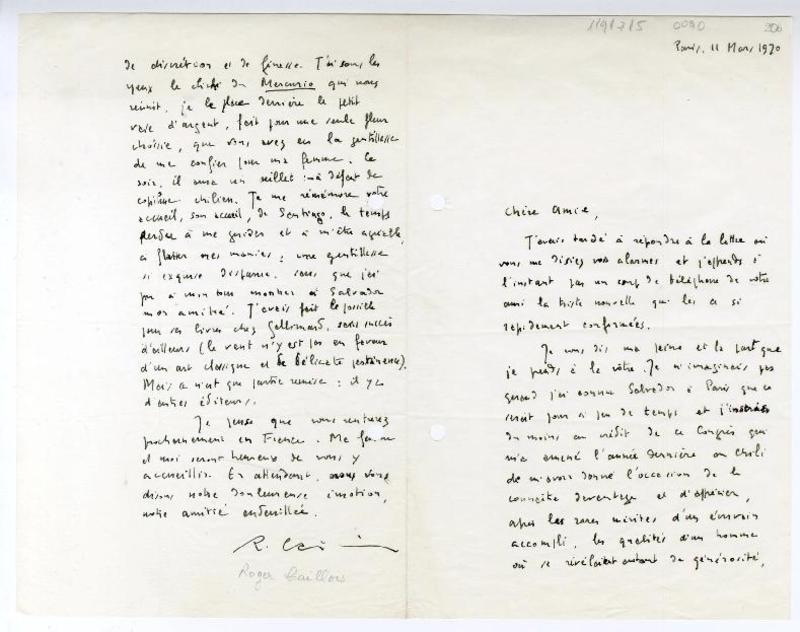 119/7/5 0090 206
Paris, 11 Mars 1970
Chère Amie,
J'avais tardé à répondre à la lettre où
vous me disiez vos alarmes et j'apprends à
l'instant par un coup de téléphone de votre
ami la triste nouvelle qui les a si
rapidement confirmées.
Je vous dis ma peine et la part que
je prends à la vôtre. Je n'imaginais pas
quand j'ai connu Salvador à Paris que ce
serait pour si peu de temps et j'inscris
du moins au crédit de ce Congrès qui
m'a amené l'année dernière au Chili
de m'avoir donné l'occasion de le
connaître davantage et d'apprécier,
après les rares mérites d'un écrivain
accompli, les qualités d'un homme
où se révélaient autant de générosité,
de discrétion et de finesse. J'ai sous les
yeux le cliché du Mercurio qui nous
réunit. Je le place derrière le petit
vase d'argent, fait pour une seule fleur
choisie, que vous avez eu la gentillesse
de me confier pour ma femme. Ce
soir, il aura un œillet à défaut de
copihue chilien. Je me remémore votre
accueil, son accueil, de Santiago, le temps
perdu à me guider et à m'être agréable,
à flatter mes manies : une gentillesse
si exquise disparue, sans que j'ai
pu à mon tour montrer à Salvador
mon amitié. J'avais fait le possible
pour ses livres chez Gallimard, sans succès
d'ailleurs (le vent n'y est pas en faveur
d'un art classique et de délicate pertinence).
Mais ce n'est que partie remise : il y a
d'autres éditeurs.
Je pense que vous rentrerez
prochainement en France. Ma femme
et moi serons heureux de vous y
accueillir. En attendant, nous vous
disons notre douloureuse émotion,
notre amitié endeuillée.
R. Caillois
Roger Caillois